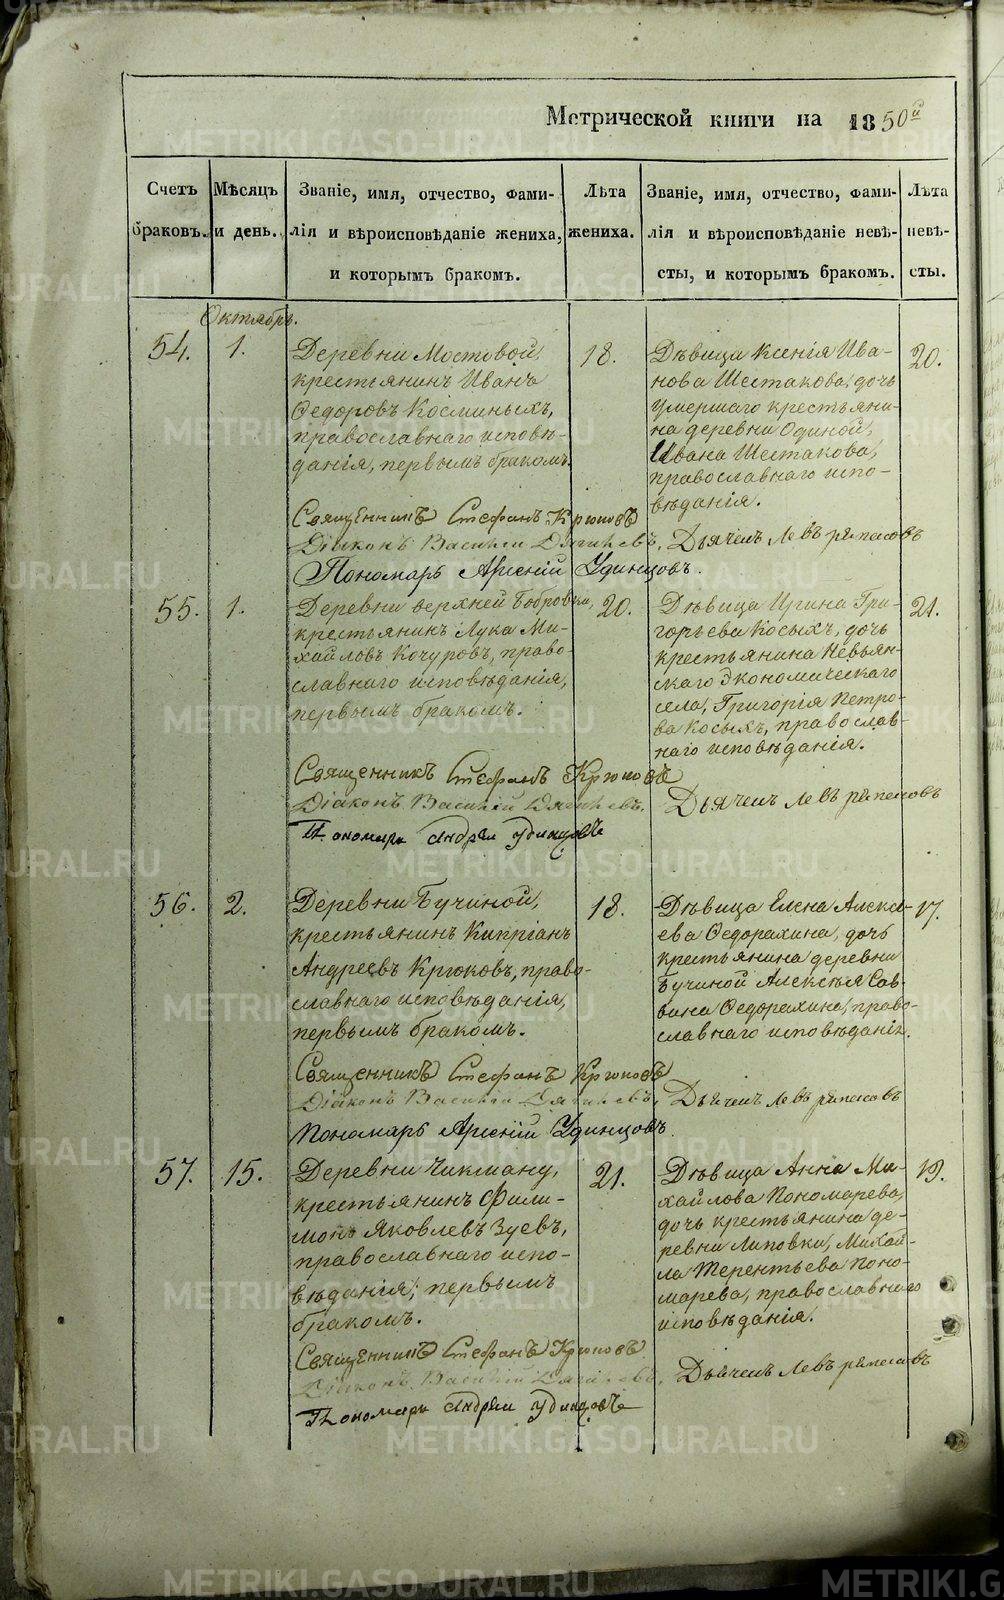 Метрической книги на 1850й
Счетъ браковъ.
Мѣсяцъ и день.
Званіе, имя, отчество, фами-
лія и вѣроисповѣданіе жениха,
и которымъ бракомъ.
Лѣта жениха.
Званіе, имя, отчество, фами-
лія и вѣроисповѣданіе невѣ-
сты, и которымъ бракомъ.
Лѣта невѣ-
сты.
Октябрь.
54.
1.
Деревни Мостовой,
крестьянинъ Иванъ
Ѳедоровъ Косминыхъ,
православнаго исповѣ-
данія, первымъ бракомъ.
18.
Дѣвица Ксенія Ива-
нова Шестакова, дочь
умершаго крестьяни-
на деревни Одиной,
Ивана Шестакова,
православнаго испо-
вѣданія.
20.
Священникъ Стефанъ Крюковъ
Діаконъ Василій
Дьячекъ Левъ
Пономарь Арсеній Удинцовъ.
55.
1.
Деревни верхней Бобровки,
крестьянинъ Лука Ми-
хайловъ Кочуровъ, право-
славнаго исповѣданія,
первымъ бракомъ.
20.
Дѣвица Ирина Гри-
горьева Косыхъ, дочь
крестьянина Невьян-
скаго Экономическаго
села, Григорія Петро-
ва Косыхъ, православ-
наго исповѣданія.
21.
Священникъ Стефанъ Крюковъ
Діаконъ Василій
Дьячекъ Левъ
Пономарь Андрей Удинцовъ
56.
2.
Деревни Бучиной,
крестьянинъ Кипріанъ
Андреевъ Крюковъ, право-
славнаго исповѣданія,
первымъ бракомъ.
18.
Дѣвица Елена Алексѣ-
ева Ѳедорахина, дочь
крестьянина деревни
Бучиной Алексѣя Сав-
вина Ѳедорахина, право-
славнаго исповѣданія.
17.
Священникъ Стефанъ Крюковъ
Діаконъ Василій
Дьячекъ Левъ
Пономарь Арсеній Удинцовъ
57.
15.
Деревни Чикману,
крестьянинъ Фили-
монъ Яковлевъ Зуевъ,
православнаго испо-
вѣданія, первымъ
бракомъ.
21.
Дѣвица Анна Ми-
хайлова Пономарева,
дочь крестьянина де-
ревни Липовки, Михай-
ла Терентьева Поно-
марева, православнаго
исповѣданія.
19.
Священникъ Стефанъ Крюковъ
Діаконъ Василій
Дьячекъ Левъ
Пономарь Андрей Удинцовъ
METRIKI.GASO-URAL.RU